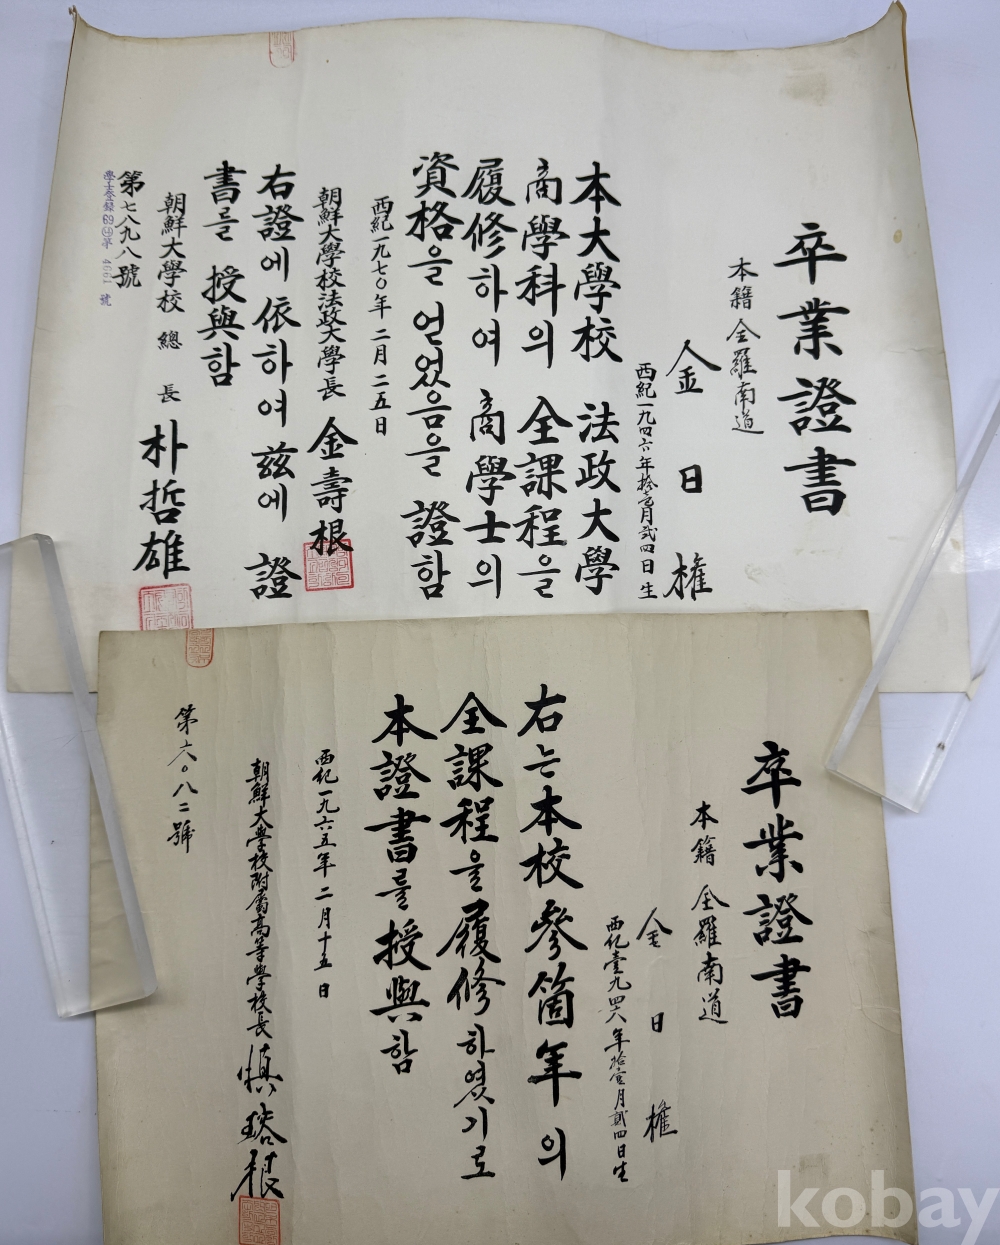 卒業證書
本籍 全羅南道
金日權
西紀一九四六年拾壹月貳四日生
本大學校 法政大學
商學科의 全課程을
履修하여 商學士의
資格을 얻었음을 證함
西紀一九七〇年 二月 二五日
朝鮮大學校法政大學長 金壽根
右證에 依하여 玆에 證
書를 授與함
朝鮮大學校 總長 朴哲雄
第七八九八號
學士登錄69
4661 號
卒業證書
本籍 全羅南道
金日權
西紀壹九四六年拾壹月貳四日生
右는 本校 參箇年의
全課程을 履修하였기로
本證書를 授與함
西紀一九六五年 二月十五日
朝鮮大學校附屬高等學校長 慎鏴根
第六〇八二號
kobay